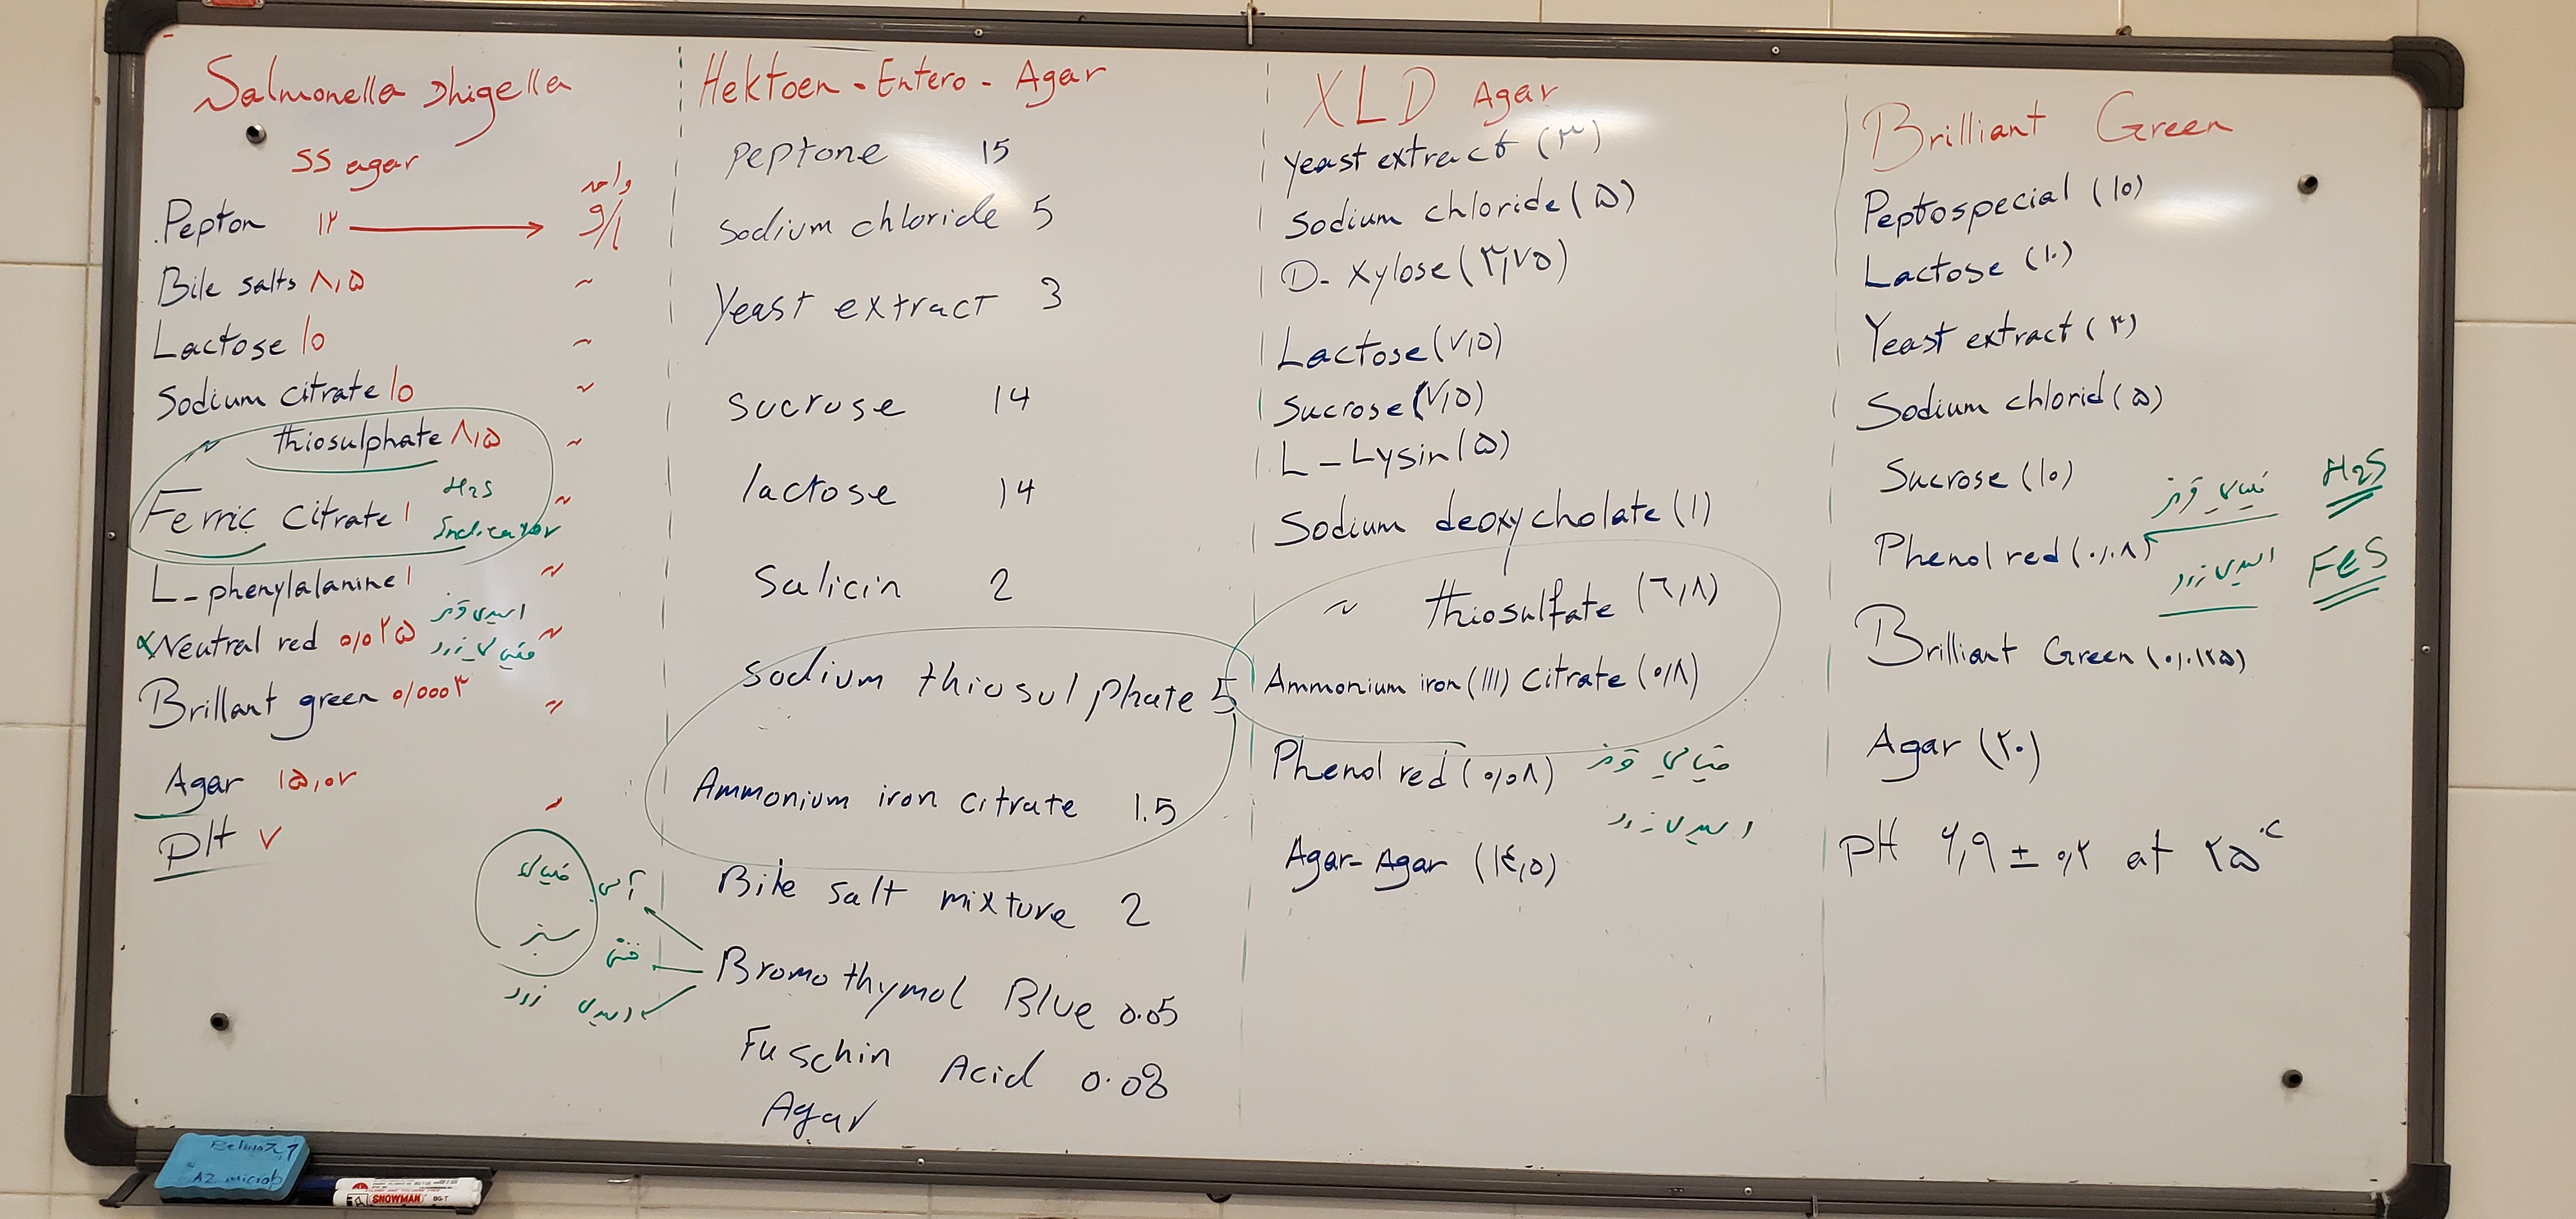 Salmonella shigella
SS agar
واحد
Pepton ۱۲ → g/l
Bile salts ۸,۵ ~
Lactose ۱o ~
Sodium citrate ۱o ~
~ thiosulphate ۸,۵ ~
Ferric citrate ۱ H2S Indicator ~
L-phenylalanine ۱ ~
Neutral red o,o۲۵ اسیدی قرمز ~
قلیایی زرد
Brillant green o,ooo۳ ~
Agar ۱۵,o۲ ~
pH ۷
Hektoen - Entero - Agar
peptone 15
sodium chloride 5
Yeast extract 3
sucrose 14
lactose 14
Salicin 2
sodium thiosulphate 5
Ammonium iron citrate 1.5
Bile salt mixture 2
Bromo thymol Blue 0.05
آبی قلیایی
خنثی سبز
اسیدی زرد
Fuschin Acid 0.08
Agar
XLD Agar
Yeast extract (۳)
Sodium chloride (۵)
D- Xylose (۳,۷۵)
Lactose (۷,۵)
Sucrose (۷,۵)
L-Lysin (۵)
Sodium deoxycholate (۱)
~ thiosulfate (٦,۸)
Ammonium iron (III) citrate (o,۸)
Phenol red (o,o۸) قلیایی قرمز
اسیدی زرد
Agar-Agar (۱٤,۵)
Brilliant Green
Peptospecial (۱o)
Lactose (۱۰)
Yeast extract (۳)
Sodium chlorid (۵)
Sucrose (۱o)
قلیایی قرمز H2S
Phenol red (۰,۰۸) اسیدی زرد FeS
Brilliant Green (o,۰۱۲۵)
Agar (۲۰)
pH ۶,۹ ± o,۲ at ۲۵ °C
AZ microb
SNOWMAN BG-T